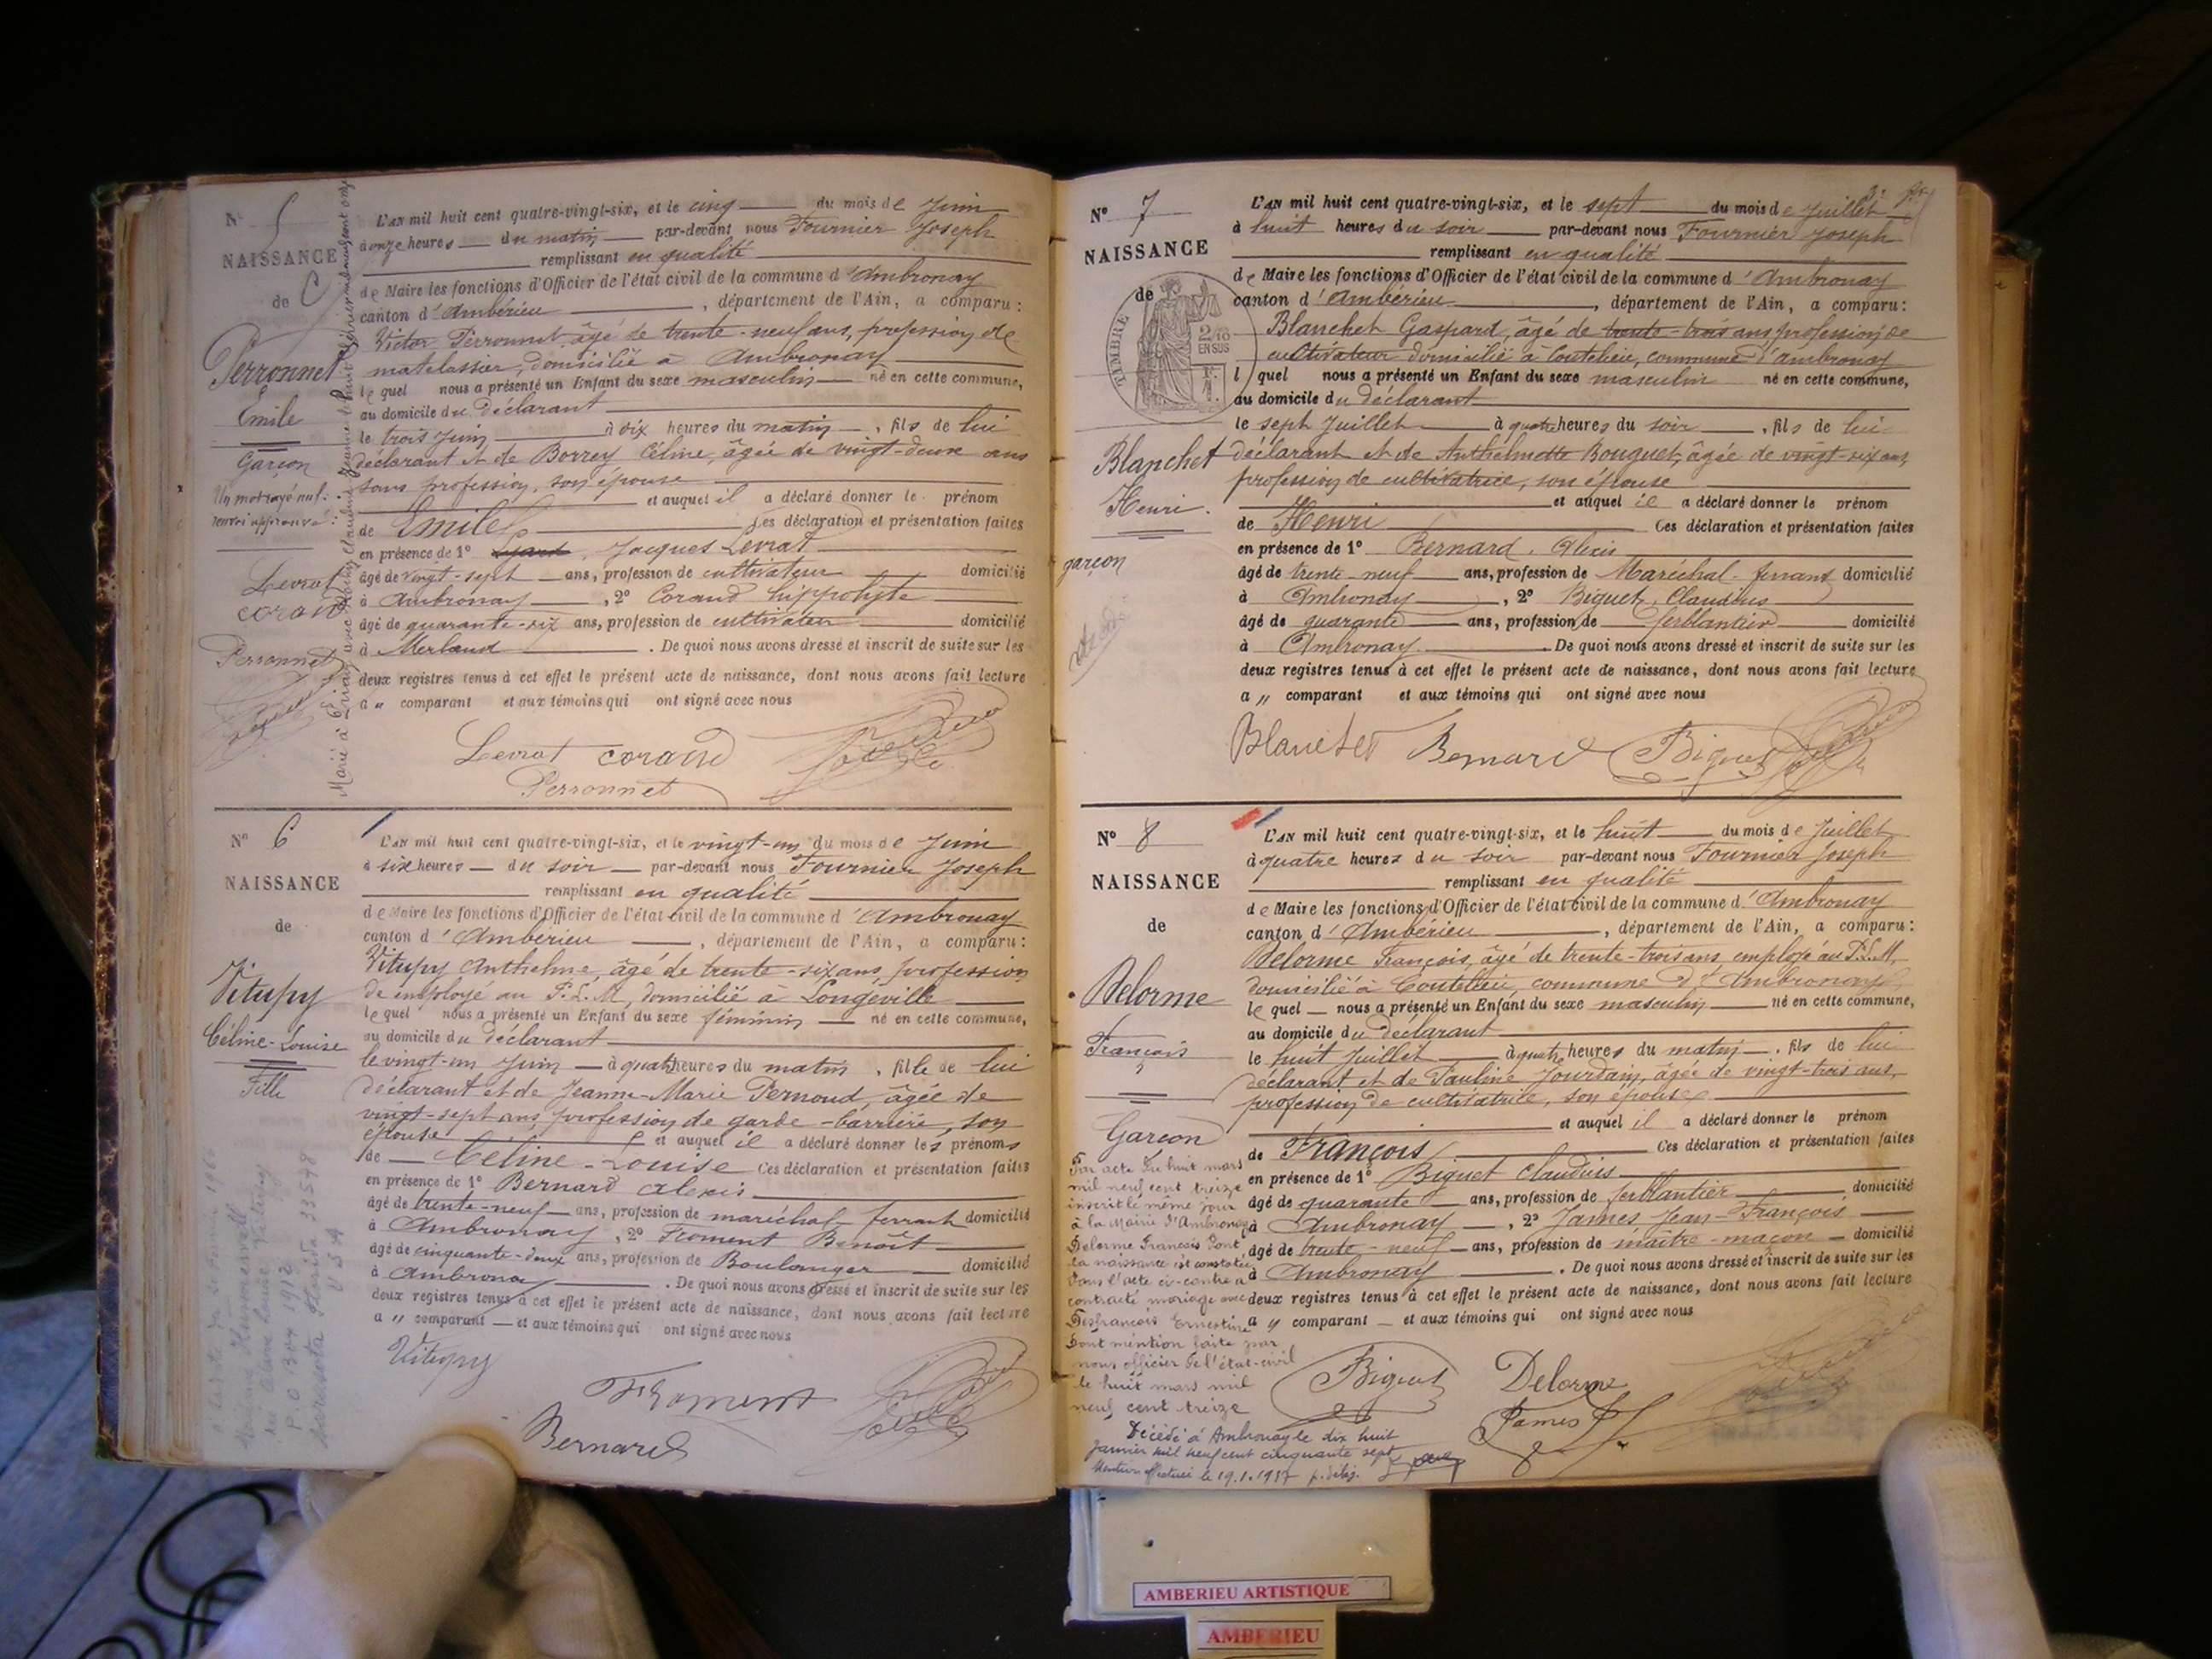 N° 5
NAISSANCE
de
Perronnet
Emile
Garçon
Un mot rayé nul:
renvoi approuvé:
Levrat
corand
Perronnet
L'AN mil huit cent quatre-vingt-six, et le cinq du mois de Juin
à onze heures du matin par-devant nous Fournier Joseph
remplissant en qualité
de Maire les fonctions d'Officier de l'état civil de la commune d'Ambronay
canton d'Ambérieu, département de l'Ain, a comparu:
Victor Perronnet, âgé de trente-neuf ans, profession de
matelassier, domicilié à Ambronay
lequel nous a présenté un Enfant du sexe masculin né en cette commune,
au domicile du déclarant
le trois Juin à dix heures du matin, fils de lui
déclarant et de Borrey Céline, âgée de vingt-deux ans
sans profession, son épouse
et auquel il a déclaré donner le prénom
de Emile Ces déclaration et présentation faites
en présence de 1° Jacques Levrat
âgé de vingt-sept ans, profession de cultivateur domicilié
à Ambronay, 2° Corand hippolyte
âgé de quarante-six ans, profession de cultivateur domicilié
à Merland. De quoi nous avons dressé et inscrit de suite sur les
deux registres tenus à cet effet le présent acte de naissance, dont nous avons fait lecture
a " comparant et aux témoins qui ont signé avec nous
Levrat corand
Perronnet
N° 6
NAISSANCE
de
Vitupy
Céline-Louise
Fille
L'AN mil huit cent quatre-vingt-six, et le vingt-un du mois de Juin
à six heures du soir par-devant nous Fournier Joseph
remplissant en qualité
de Maire les fonctions d'Officier de l'état civil de la commune d'Ambronay
canton d'Ambérieu, département de l'Ain, a comparu:
Vitupy Anthelme, âgé de trente-six ans, profession
de employé au P.L.M, domicilié à Longeville
lequel nous a présenté un Enfant du sexe féminin né en cette commune,
au domicile du déclarant
le vingt-un Juin à quatre heures du matin, fille de lui
déclarant et de Jeanne-Marie Pernoud, âgée de
vingt-sept ans, profession de garde-barrière, son
épouse et auquel il a déclaré donner les prénoms
de Céline-Louise Ces déclaration et présentation faites
en présence de 1° Bernard Alexis
âgé de trente-neuf ans, profession de maréchal-ferrant domicilié
à Ambronay, 2° Froment Benoît
âgé de cinquante-deux ans, profession de Boulanger domicilié
à Ambronay. De quoi nous avons dressé et inscrit de suite sur les
deux registres tenus à cet effet le présent acte de naissance, dont nous avons fait lecture
a " comparant et aux témoins qui ont signé avec nous
Vitupy
Froment
Bernard
N° 7
NAISSANCE
de
TIMBRE
2/10
EN SUS
Blanchet
Henri.
garçon
L'AN mil huit cent quatre-vingt-six, et le sept du mois de Juillet
à huit heures du soir par-devant nous Fournier Joseph
remplissant en qualité
de Maire les fonctions d'Officier de l'état civil de la commune d'Ambronay
canton d'Ambérieu, département de l'Ain, a comparu:
Blanchet Gaspard, âgé de trente-trois ans, profession de
cultivateur domicilié à Coutelieu, commune d'Ambronay
l quel nous a présenté un Enfant du sexe masculin né en cette commune,
au domicile du déclarant
le sept Juillet à quatre heures du soir, fils de lui
déclarant et de Anthelmette Bouquet, âgée de vingt-six ans,
profession de cultivatrice, son épouse
et auquel il a déclaré donner le prénom
de Henri Ces déclaration et présentation faites
en présence de 1° Bernard Alexis
âgé de trente-neuf ans, profession de Maréchal-ferrant domicilié
à Ambronay, 2° Biguet, Claudius
âgé de quarante ans, profession de ferblantier domicilié
à Ambronay. De quoi nous avons dressé et inscrit de suite sur les
deux registres tenus à cet effet le présent acte de naissance, dont nous avons fait lecture
a " comparant et aux témoins qui ont signé avec nous
Blanchet Bernard Biguet
N° 8
NAISSANCE
de
Delorme
François
Garçon
Par acte du huit mars
mil neuf cent treize
inscrit le même jour
à la Mairie d'Ambronay
Delorme François dont
la naissance est constatée
dans l'acte ci-contre a
contracté mariage avec
Desfrançois Ernestine
Dont mention faite par
nous officier de l'état-civil
le huit mars mil
neuf cent treize
Décédé à Ambronay le dix huit
Janvier mil neuf cent cinquante sept
Mention effectuée le 19.1.1957
L'AN mil huit cent quatre-vingt-six, et le huit du mois de Juillet
à quatre heures du soir par-devant nous Fournier Joseph
remplissant en qualité
de Maire les fonctions d'Officier de l'état civil de la commune d'Ambronay
canton d'Ambérieu, département de l'Ain, a comparu:
Delorme François, âgé de trente-trois ans, employé au P.L.M,
domicilié à Coutelieu, commune d'Ambronay
lequel nous a présenté un Enfant du sexe masculin né en cette commune,
au domicile du déclarant
le huit Juillet à quatre heures du matin, fils de lui
déclarant et de Pauline Jourdain, âgée de vingt-trois ans,
profession de cultivatrice, son épouse
et auquel il a déclaré donner le prénom
de François Ces déclaration et présentation faites
en présence de 1° Biguet Claudius
âgé de quarante ans, profession de ferblantier domicilié
à Ambronay, 2° James Jean-François
âgé de trente-neuf ans, profession de maître-maçon domicilié
à Ambronay. De quoi nous avons dressé et inscrit de suite sur les
deux registres tenus à cet effet le présent acte de naissance, dont nous avons fait lecture
a " comparant et aux témoins qui ont signé avec nous
Biguet Delorme
James
AMBERIEU ARTISTIQUE
AMBERIEU